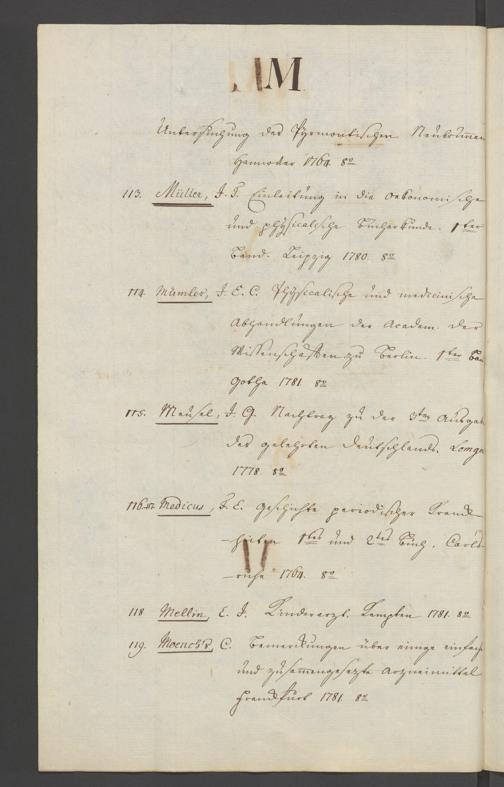 M
Untersuchung des Pyrmontischen Neubrunnen
Hannover 1764. 8º
113. Müller, J. T. Einleitung in die oekonomische
und physicalische Bücherkunde. 1ter
Band. Leipzig 1780. 8º
114. Mümler, J. E. C. Physicalische und medicinische
Abhandlungen der Academ. der
Wissenschaften zu Berlin. 1ter Ban
Gotha 1781. 8º
115. Meusel, J. G. Nachtrag zu der 3ten Ausgab
des gelehrten Deutschlands. Lemgo
1778. 8º
116. Medicus, F. C. Geschichte periodischer Krank-
heiten 1tes und 2tes Buch. Carls
ruhe 1764. 8º
118. Mellin, C. J. Kinderarzt. Kempten 1781. 8º
119. Moench's, C. Bemerkungen über einige einfach
und zusammengesezte Arzneimittel
Frankfurt 1781. 8º